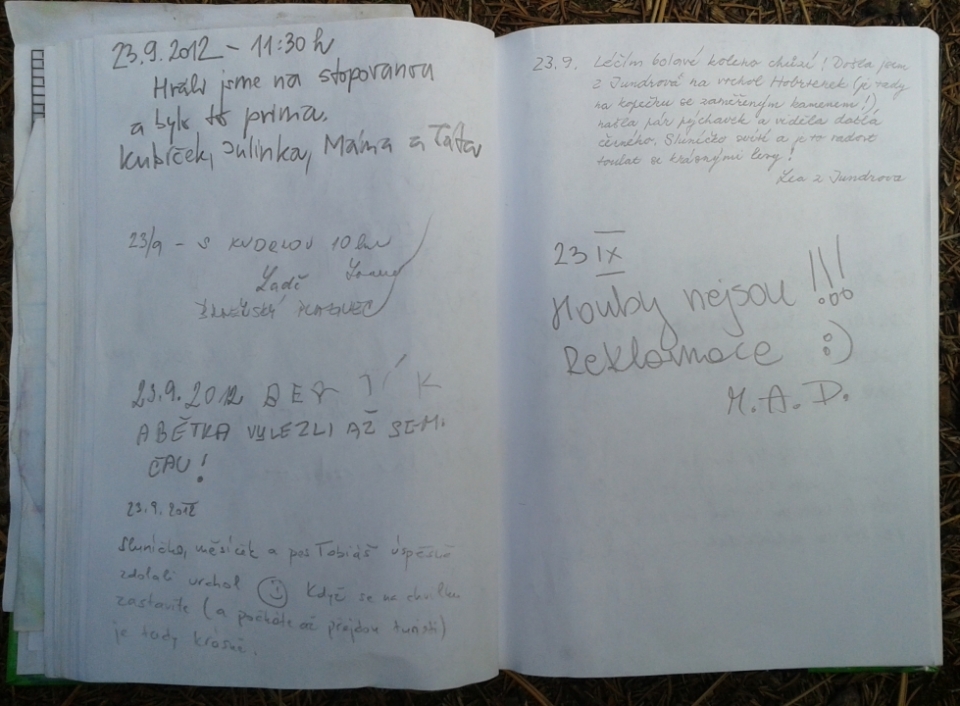 23.9.2012 - 11:30 h
Hráli jsme na stopovanou
a bylo to príma.
Kubíček, Julinka, Máma a Táta
23/9 - S KUDRLOU 10 km
Ladí
23.9.2012
ABĚTKA VYLEZLI AŽ SEM.
ČAU!
23.9.2012
Sluníčko, měsíček a pes Tobiáš úspěšně
zdolali vrchol Když se na chvilku
zastavíte (a počkáte až přejdou turisti)
je tady krásně.
23.9. Léčím bolavé koleno chůzí! Došla jsem
z Jundrova na vrchol (je tady
na kopečku se zaměřeným kamenem!),
našla pár pýchavek a viděla datla
černého. Sluníčko svítí a je to radost
toulat se krásnými lesy!
Lea z Jundrova
23 IX
Houby nejsou!!!
Reklamace :)
M.A.D.